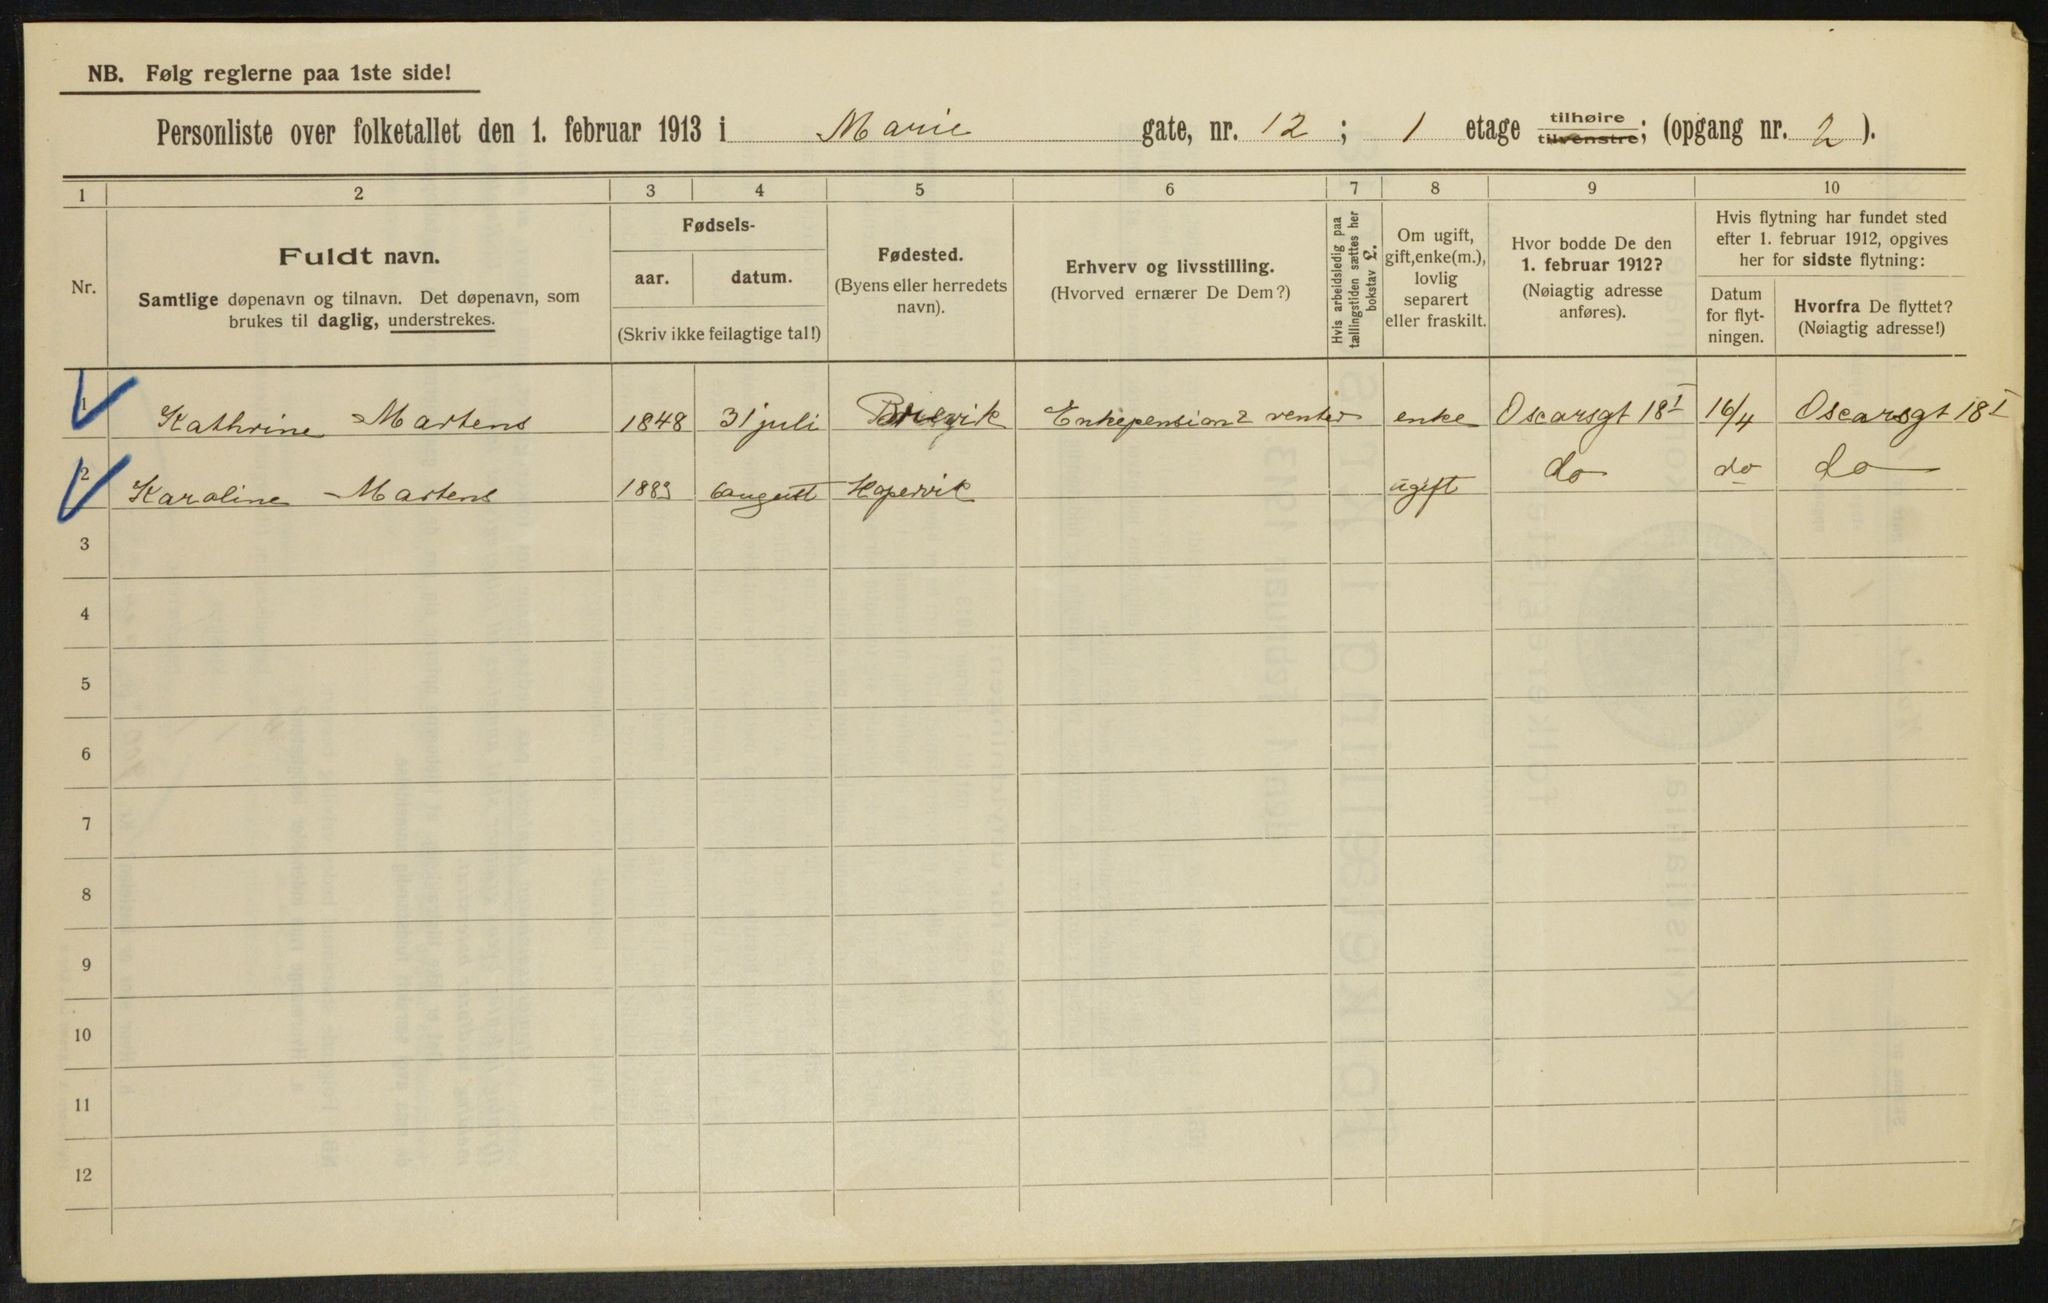 NB. Følg reglerne paa 1ste side!
Personliste over folketallet den 1. februar 1913 i Marie gate, nr. 12 ; 1 etage tilhøire tilvenstre; (opgang nr. 2 ).
1 2 3 4 5 6 7 8 9 10
Nr.
Fuldt navn.
Samtlige døpenavn og tilnavn. Det døpenavn, som
brukes til daglig, understrekes.
Fødsels-
aar. datum.
(Skriv ikke feilagtige tal!)
Fødested.
(Byens eller herredets
navn).
Erhverv og livsstilling.
(Hvorved ernærer De Dem?)
Hvis arbeidsledig paa
tællingstiden sættes her
bokstav L.
Om ugift,
gift, enke(m.),
lovlig
separert
eller fraskilt.
Hvor bodde De den
1. februar 1912?
(Nøiagtig adresse
anføres).
Hvis flytning har fundet sted
efter 1. februar 1912, opgives
her for sidste flytning:
Datum
for flyt-
ningen.
Hvorfra De flyttet?
(Nøiagtig adresse!)
1 Kathrine Martens 1848 31 juli Brevik Enkepension & renter enke Oscarsgt 18 I 16/4 Oscarsgt 18 I
2 Karoline Martens 1883 6 august Kopervik ugift do do do
3
4
5
6
7
8
9
10
11
12